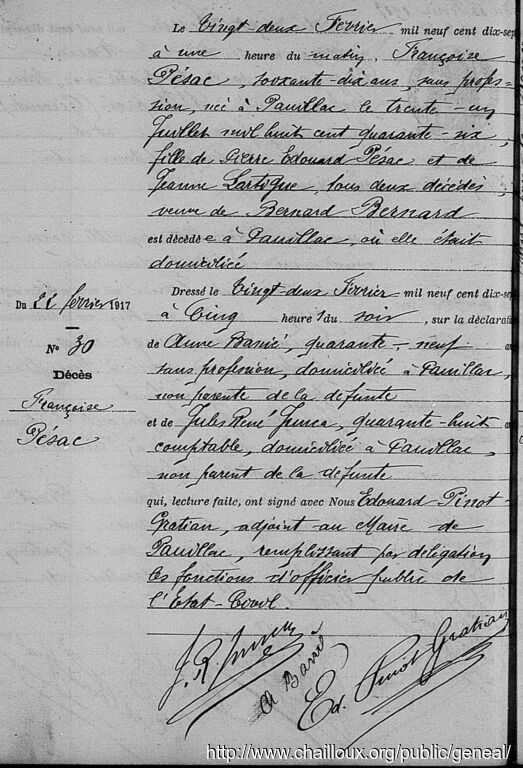 Le Vingt-deux Fevrier mil neuf cent dix-sep
à une heure du matin, Françoise
Pésac, soixante-dix ans, sans profes-
sion, née à Pauillac le trente-un
Juillet mil huit cent quarante-six,
fille de Pierre Edouard Pésac et de
Jeanne Lartigue, tous deux décédés,
veuve de Bernard Bernard
est décédée à Pauillac, où elle était
domiciliée
Du 22 février 1917
N° 30
Décès
Françoise
Pésac
Dressé le Vingt-deux Fevrier mil neuf cent dix-sep
à Cinq heures du soir, sur la déclarati
de Anne Banié, quarante-neuf an
sans profession, domiciliée à Pauillac,
non parente de la défunte
et de Jules René Jurca, quarante-huit a
comptable, domicilié à Pauillac,
non parent de la défunte
qui, lecture faite, ont signé avec Nous Edouard Pinot-
Gratian, adjoint au Maire de
Pauillac, remplissant par délégation
les fonctions d'officier public de
l'Etat-Civil.
A Banié
Ed. Pinot Gratian
http://www.chailloux.org/public/geneal/